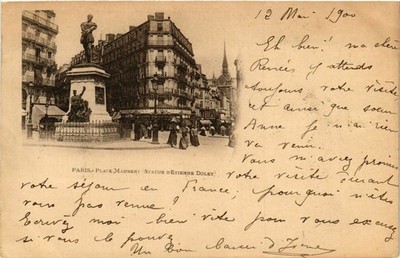 12 Mai 1900
Eh bien! ma chère
Renée j'attends
toujours votre visite
et ainsi que soeur
Anne je n'ai rien
vu venir.
Vous m'aviez promis
PARIS - PLACE MAUBERT (STATUE D'ETIENNE DOLET)
votre visite durant
votre séjour en France, pourquoi n'êtes
vous pas venue?
Ecrivez moi bien vite pour vous excuser
si vous le pouvez
Un bon baiser